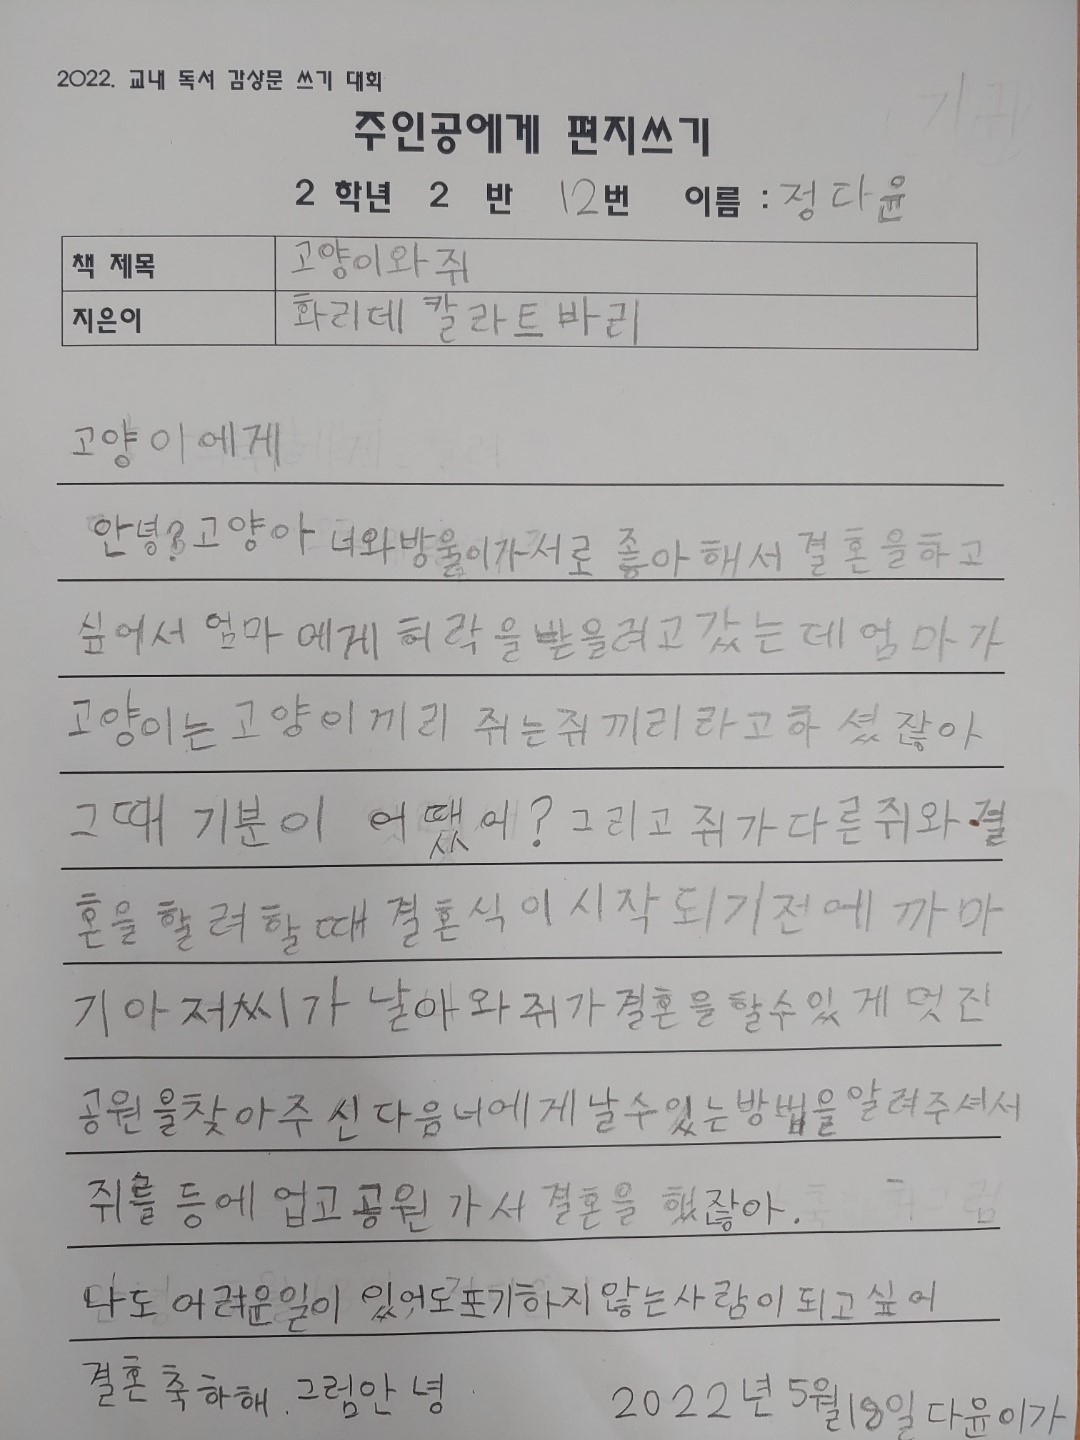 2022. 교내 독서 감상문 쓰기 대회
주인공에게 편지쓰기
2 학년 2 반 12번 이름 : 정다윤
책 제목 고양이와 쥐
지은이 화리데 칼라트바리
고양이에게
안녕? 고양아 너와 방울이가 서로 좋아해서 결혼을 하고
싶어서 엄마에게 허락을 받을려고 갔는데 엄마가
고양이는 고양이끼리 쥐는 쥐끼리라고 하셨잖아
그때 기분이 어땠어? 그리고 쥐가 다른 쥐와 결
혼을 할려 할때 결혼식이 시작되기전에 까마
기 아저씨가 날아와 쥐가 결혼을 할수있게 멋진
공원을 찾아주신 다음 너에게 날수있는 방법을 알려주셔서
쥐를 등에 업고 공원 가서 결혼을 했잖아.
나도 어려운일이 있어도 포기하지 않는 사람이 되고 싶어
결혼 축하해. 그럼 안녕 2022년 5월 18일 다윤이가